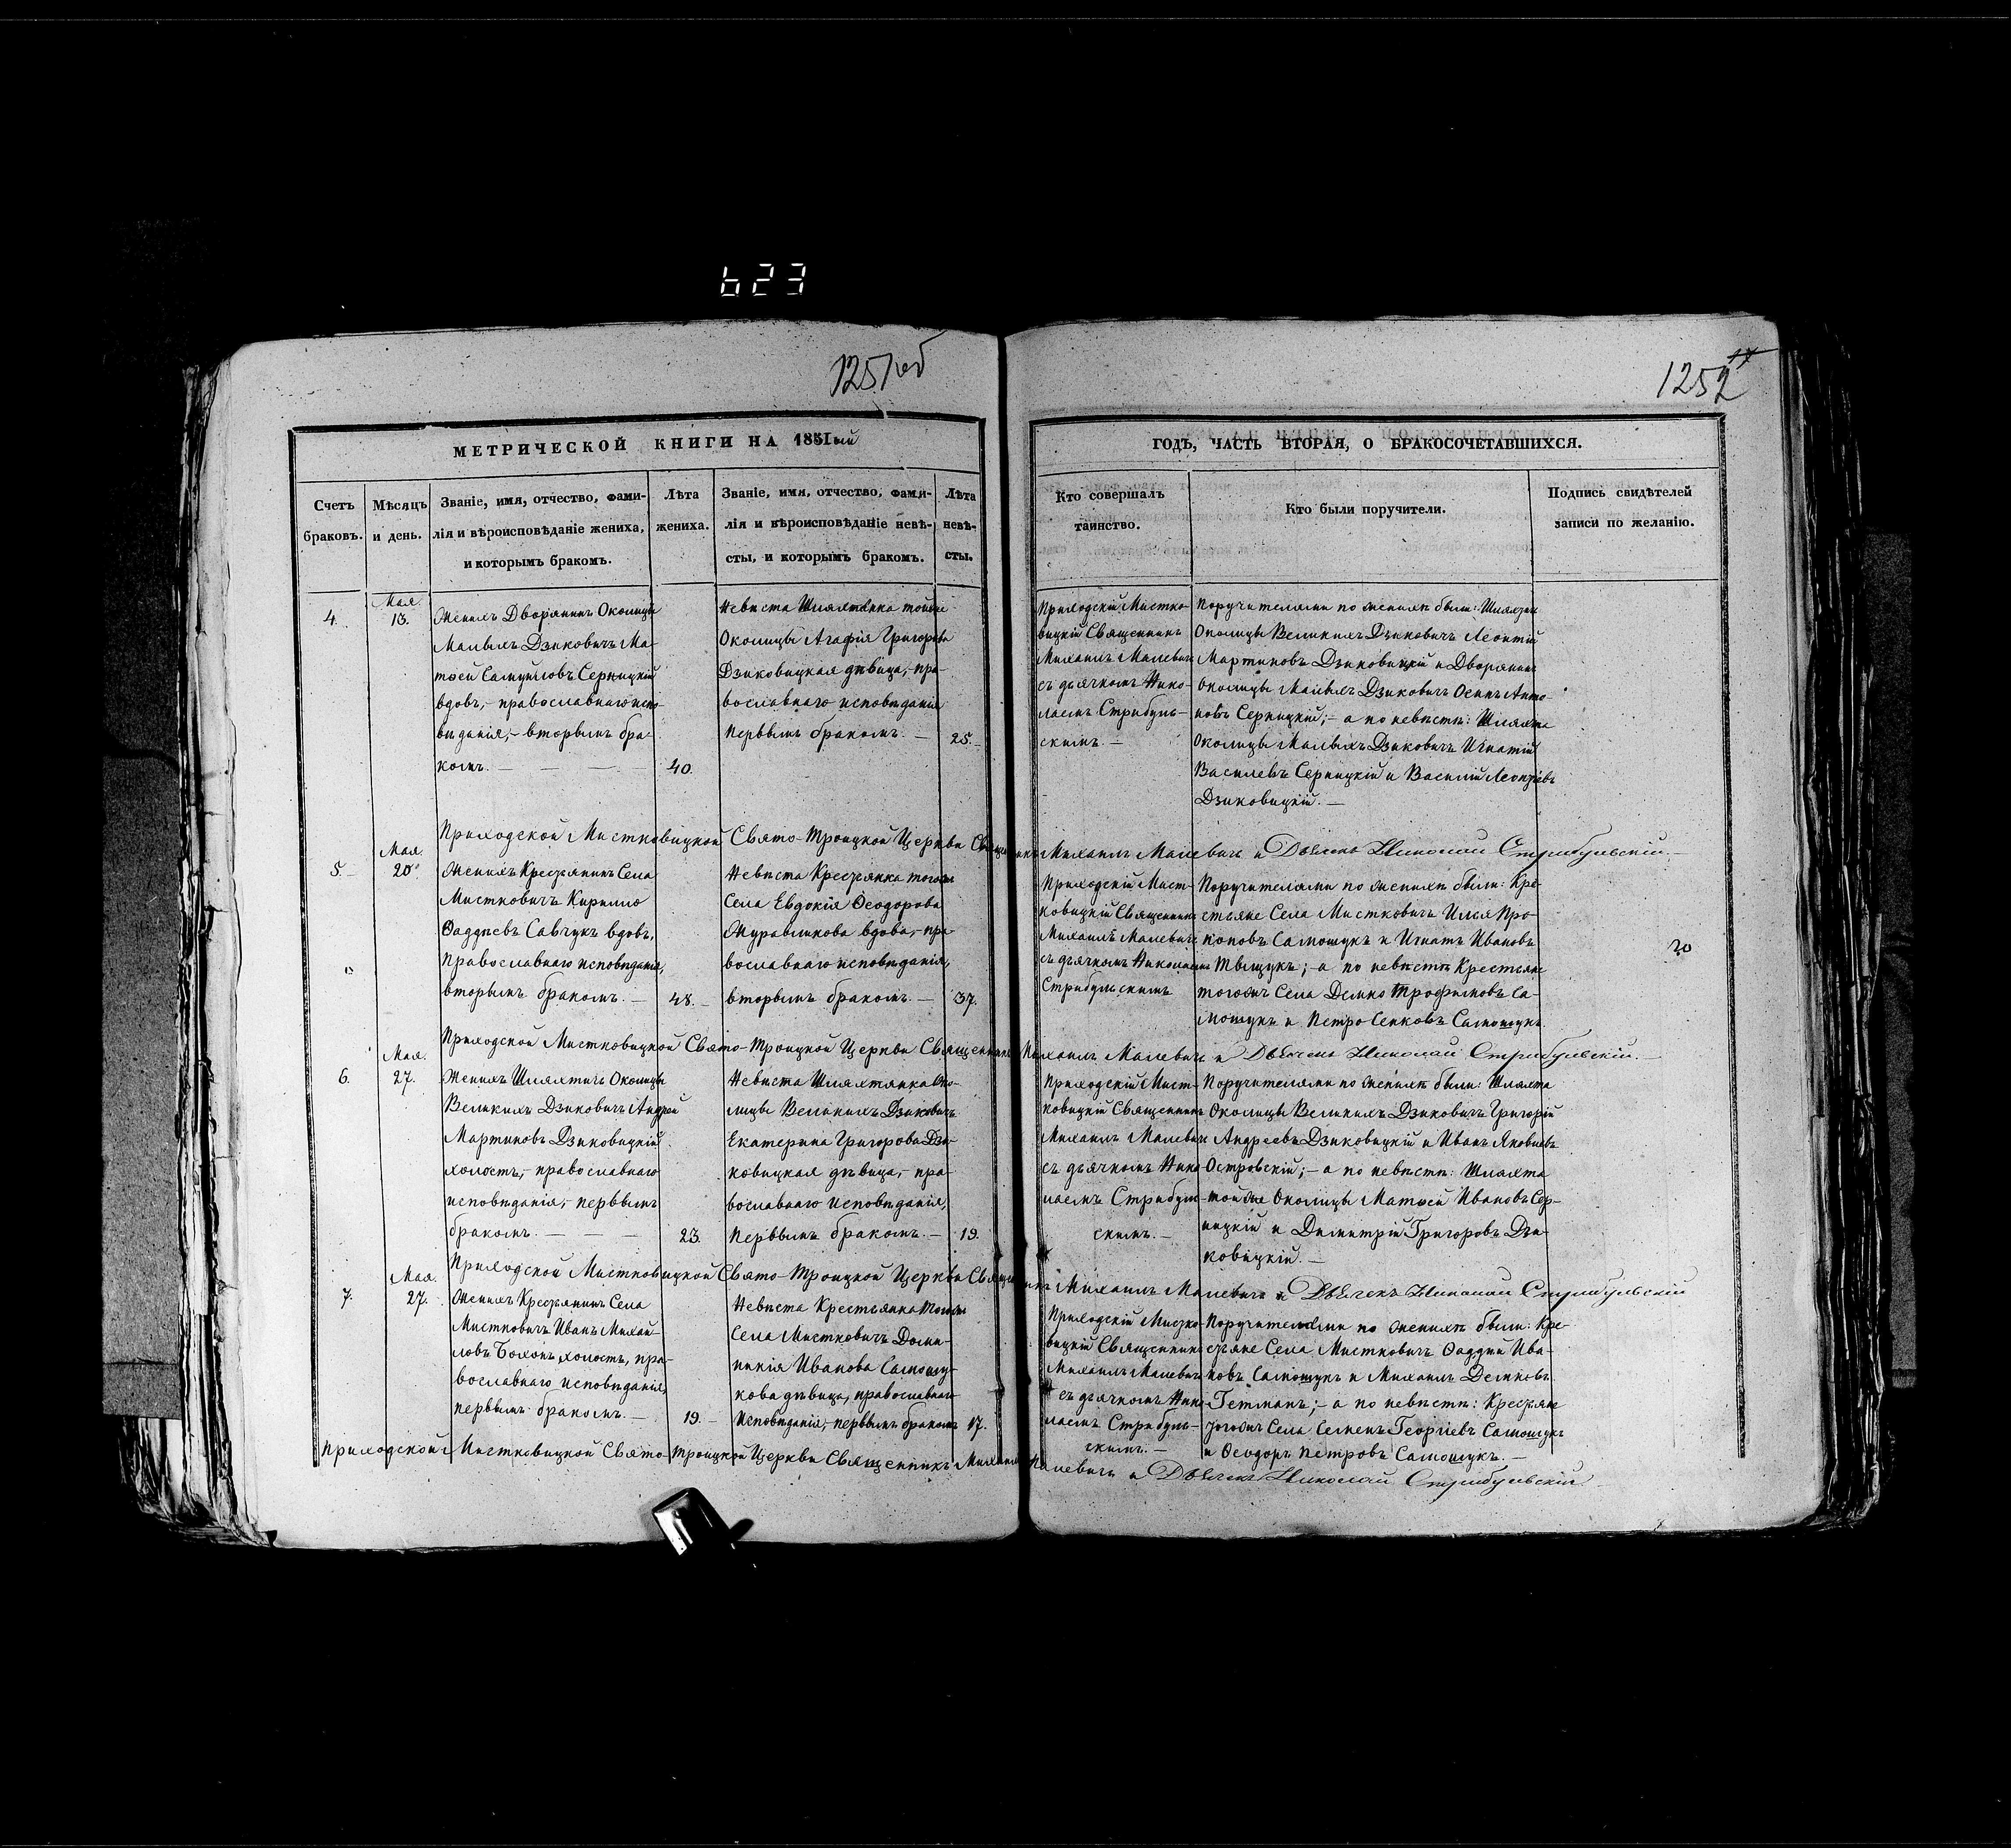 623
1251об
1252
МЕТРИЧЕСКОЙ КНИГИ НА 1851ый
Счетъ
браковъ.
Мѣсяцъ
и день.
Званіе, имя, отчество, фами-
лія и вѣроисповѣданіе жениха,
и которымъ бракомъ.
Лѣта
жениха.
Званіе, имя, отчество, фами-
лія и вѣроисповѣданіе невѣ-
сты, и которымъ бракомъ.
Лѣта
невѣ-
сты.
ГОДЪ, ЧАСТЬ ВТОРАЯ, О БРАКОСОЧЕТАВШИХСЯ.
Кто совершалъ
таинство.
Кто были поручители.
Подпись свидѣтелей
записи по желанію.
4.
Мая.
13.
Женихъ Дворянинъ Околицы
Малыхъ Дзиковичъ Ма-
тѳей Самуиловъ Серницкій
вдовъ,- православнаго испо-
вѣданія,- вторымъ бра-
комъ. — — —
40.
Невѣста Шляхтянка тойже
Околицы Агафія Григорьева
Дзиковицкая дѣвица,- пра-
вославнаго исповѣданія
первымъ бракомъ. —
25.
Приходскій Мистко-
вицкій Священникъ
Михаилъ Малевичъ
съ дьячкомъ Нико-
лаемъ Стрибуль-
скимъ. —
Поручителями по женихѣ были: Шляхтич
Околицы Великихъ Дзиковичъ Леонтій
Мартиновъ Дзиковицкій и Дворянинъ
околицы Малыхъ Дзиковичъ Осипъ Анто-
новъ Серницкій;- а по невѣстѣ: Шляхта
Околицы Малыхъ Дзиковичъ Игнатій
Василевъ Серницкій и Василій Леонтіевъ
Дзиковицкій. —
Приходской Мистковицкой Свято-Троицкой Церкви Священникъ Михаилъ Малевичъ и Дьячекъ Николай Стрибульскій. —
5.
Мая.
20.
Женихъ Крестьянинъ Села
Мистковичъ Кирилло
Ѳаддѣевъ Савчукъ вдовъ,
православнаго исповѣданія,
вторымъ бракомъ. —
48. —
Невѣста Крестьянка тогоже
Села Евдокія Ѳеодорова
Журавликова вдова,- пра-
вославнаго исповѣданія,
вторымъ бракомъ. —
37.
Приходскій Мист-
ковицкій Священникъ
Михаилъ Малевичъ
съ дьячкомъ Николаемъ
Стрибульскимъ
Поручителями по женихѣ были: Кре-
стьяне Села Мистковичъ Илья Про-
коповъ Самошукъ и Игнатъ Ивановъ
;- а по невѣстѣ Крестьяне
тогожъ Села Демко Трофимовъ Са-
мошукъ и Петро Сенковъ Самошукъ.
20
Приходской Мистковицкой Свято-Троицкой Церкви Священникъ Михаилъ Малевичъ и Дьячекъ Николай Стрибульскій. —
6.
Мая.
27.
Женихъ Шляхтичъ Околицы
Великихъ Дзиковичъ Андрей
Мартиновъ Дзиковицкій
холостъ,- православнаго
исповѣданія,- первымъ
бракомъ. — — —
23.
Невѣста Шляхтянка Око-
лицы Великихъ Дзиковичъ
Екатерина Григорова Дзи-
ковицкая дѣвица,- пра-
вославнаго исповѣданія,
первымъ бракомъ. —
19.
Приходскій Мист-
ковицкій Священникъ
Михаилъ Малевичъ
съ дьячкомъ Нико-
лаемъ Стрибуль-
скимъ. —
Поручителями по женихѣ были: Шляхта
Околицы Великихъ Дзиковичъ Григорій
Андреевъ Дзиковицкій и Иванъ Яковлевъ
Островскій;- а по невѣстѣ: Шляхта
тойже Околицы Матѳей Ивановъ Сер-
ницкій и Димитрій Григоровъ Дзи-
ковицкій. —
Приходской Мистковицкой Свято-Троицкой Церкви Священникъ Михаилъ Малевичъ и Дьячекъ Николай Стрибульскій
7.
Мая.
27.
Женихъ Крестьянинъ Села
Мистковичъ Иванъ Михай-
ловъ Бохонъ, холостъ, пра-
вославнаго исповѣданія,
первымъ бракомъ. —
19. —
Невѣста Крестьянка тогоже
Села Мистковичъ Доми-
никія Иванова Самошу-
кова дѣвица, православнаго
исповѣданія,- первымъ бракомъ
17.
Приходскій Мистко-
вицкій Священникъ
Михаилъ Малевичъ
съ дьячкомъ Нико-
лаемъ Стрибуль-
скимъ. —
Поручителями по женихѣ были: Кре-
стьяне Села Мистковичъ Ѳаддей Ива-
новъ Самошукъ и Михаилъ Демковъ
Гетманъ;- а по невѣстѣ: Крестьяне
тогожъ Села Семенъ Георгіевъ Самошукъ
и Ѳеодоръ Петровъ Самошукъ. —
Приходской Мистковицкой Свято-Троицкой Церкви Священникъ Михаилъ Малевичъ и Дьячекъ Николай Стрибульскій